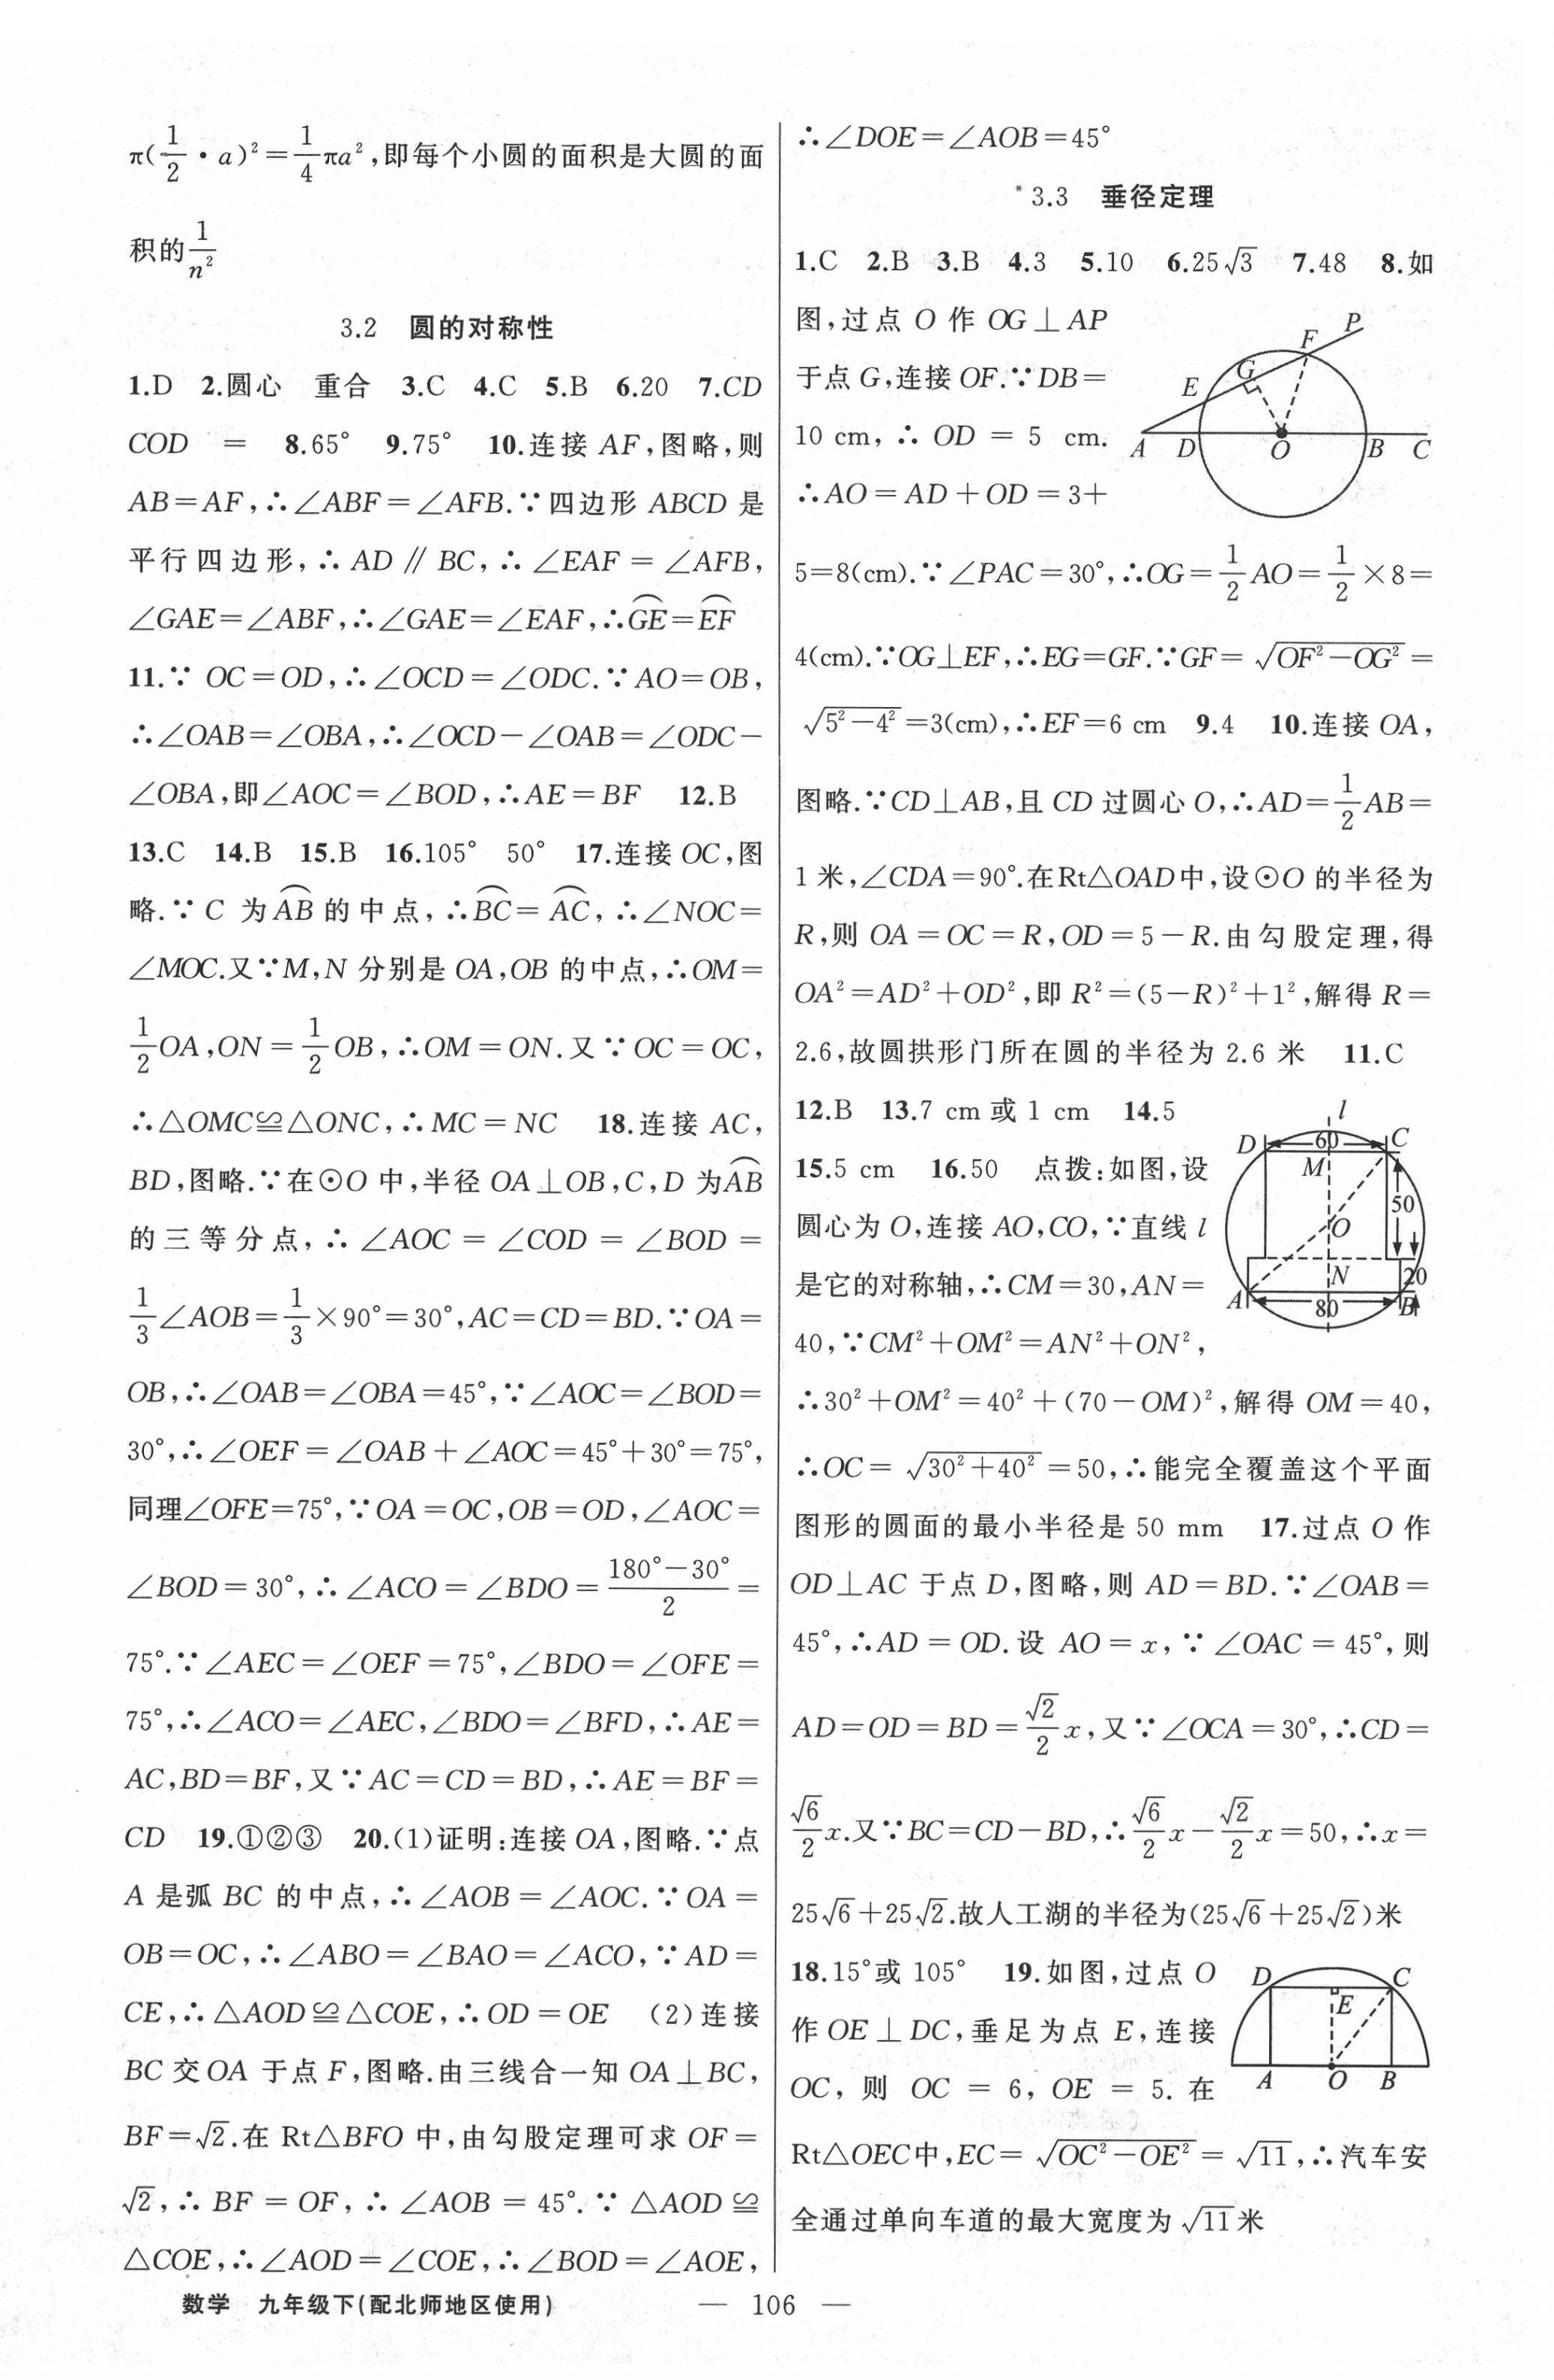 π(1/2·a)²=1/4πa²,即每个小圆的面积是大圆的面
积的1/n²
3.2 圆的对称性
1.D 2.圆心 重合 3.C 4.C 5.B 6.20 7.CD
COD = 8.65° 9.75° 10.连接 AF,图略,则
AB=AF,∴∠ABF=∠AFB.∵四边形 ABCD 是
平行四边形,∴AD∥BC,∴∠EAF=∠AFB,
∠GAE=∠ABF,∴∠GAE=∠EAF,∴G͡E=E͡F
11.∵OC=OD,∴∠OCD=∠ODC.∵AO=OB,
∴∠OAB=∠OBA,∴∠OCD-∠OAB=∠ODC-
∠OBA,即∠AOC=∠BOD,∴AE=BF 12.B
13.C 14.B 15.B 16.105° 50° 17.连接 OC,图
略.∵C 为A͡B的中点,∴B͡C=A͡C,∴∠NOC=
∠MOC.又∵M,N 分别是 OA,OB 的中点,∴OM=
1/2OA,ON=1/2OB,∴OM=ON.又∵OC=OC,
∴△OMC≌△ONC,∴MC=NC 18.连接 AC,
BD,图略.∵在⊙O 中,半径 OA⊥OB,C,D 为A͡B
的三等分点,∴∠AOC=∠COD=∠BOD=
1/3∠AOB=1/3×90°=30°,AC=CD=BD.∵OA=
OB,∴∠OAB=∠OBA=45°,∵∠AOC=∠BOD=
30°,∴∠OEF=∠OAB+∠AOC=45°+30°=75°,
同理∠OFE=75°,∵OA=OC,OB=OD,∠AOC=
∠BOD=30°,∴∠ACO=∠BDO=(180°-30°)/2=
75°.∵∠AEC=∠OEF=75°,∠BDO=∠OFE=
75°,∴∠ACO=∠AEC,∠BDO=∠BFD,∴AE=
AC,BD=BF,又∵AC=CD=BD,∴AE=BF=
CD 19.①②③ 20.(1)证明:连接 OA,图略.∵点
A 是弧 BC 的中点,∴∠AOB=∠AOC.∵OA=
OB=OC,∴∠ABO=∠BAO=∠ACO,∵AD=
CE,∴△AOD≌△COE,∴OD=OE (2)连接
BC 交 OA 于点 F,图略.由三线合一知 OA⊥BC,
BF=√2.在 Rt△BFO 中,由勾股定理可求 OF=
√2,∴BF=OF,∴∠AOB=45°.∵△AOD≌
△COE,∴∠AOD=∠COE,∴∠BOD=∠AOE,
∴∠DOE=∠AOB=45°
*3.3 垂径定理
1.C 2.B 3.B 4.3 5.10 6.25√3 7.48 8.如
图,过点 O 作 OG⊥AP
于点 G,连接 OF.∵DB=
10 cm,∴OD=5 cm.
∴AO=AD+OD=3+
P
F
G
E
A D O B C
5=8(cm).∵∠PAC=30°,∴OG=1/2AO=1/2×8=
4(cm).∵OG⊥EF,∴EG=GF.∵GF=√(OF²-OG²)=
√(5²-4²)=3(cm),∴EF=6 cm 9.4 10.连接 OA,
图略.∵CD⊥AB,且 CD 过圆心 O,∴AD=1/2AB=
1 米,∠CDA=90°.在Rt△OAD中,设⊙O 的半径为
R,则 OA=OC=R,OD=5-R.由勾股定理,得
OA²=AD²+OD²,即 R²=(5-R)²+1²,解得 R=
2.6,故圆拱形门所在圆的半径为 2.6 米 11.C
12.B 13.7 cm 或 1 cm 14.5
15.5 cm 16.50 点拨:如图,设
圆心为 O,连接 AO,CO,∵直线 l
是它的对称轴,∴CM=30,AN=
40,∵CM²+OM²=AN²+ON²,
l
D 60 C
M
50
O
N 20
A 80 B
∴30²+OM²=40²+(70-OM)²,解得 OM=40,
∴OC=√(30²+40²)=50,∴能完全覆盖这个平面
图形的圆面的最小半径是 50 mm 17.过点 O 作
OD⊥AC 于点 D,图略,则 AD=BD.∵∠OAB=
45°,∴AD=OD.设 AO=x,∵∠OAC=45°,则
AD=OD=BD=√2/2x,又∵∠OCA=30°,∴CD=
√6/2x.又∵BC=CD-BD,∴√6/2x-√2/2x=50,∴x=
25√6+25√2.故人工湖的半径为(25√6+25√2)米
18.15°或 105° 19.如图,过点 O
作 OE⊥DC,垂足为点 E,连接
OC,则 OC=6,OE=5.在
D C
E
A O B
Rt△OEC中,EC=√(OC²-OE²)=√11,∴汽车安
全通过单向车道的最大宽度为√11米
数学 九年级下(配北师地区使用) — 106 —